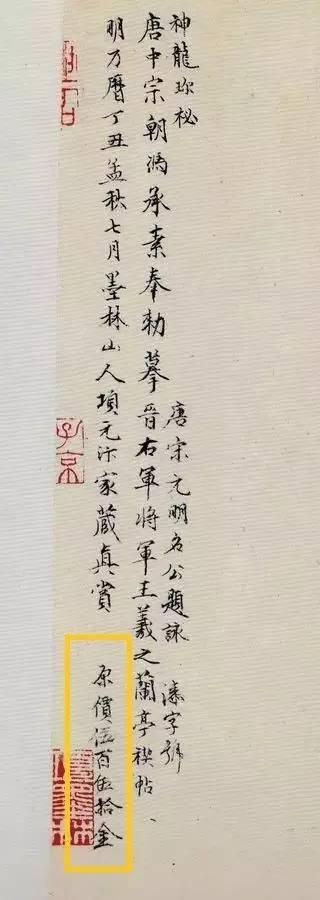 神龍珎秘
唐宋元明名公題詠 溱字號
唐中宗朝馮承素奉勑摹晉右軍將軍王羲之蘭亭禊帖
明万曆丁丑孟秋七月墨林山人項元汴家藏真賞
原價伍百伍拾金
子京